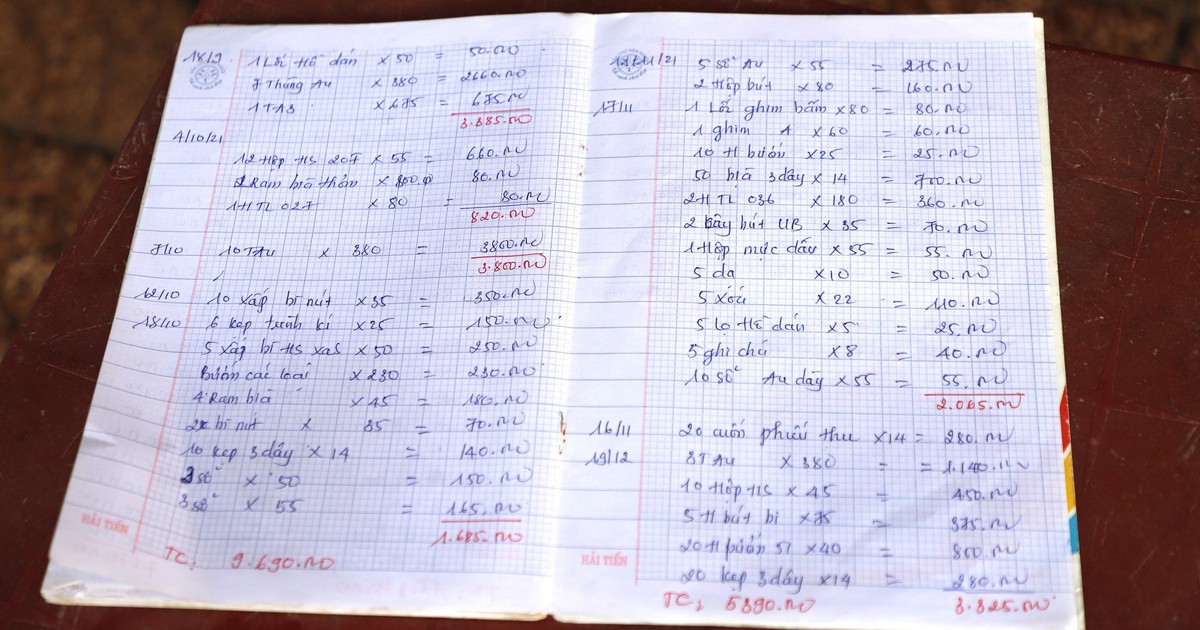 18/9 1 Lốc Hồ dán x 50 = 50.000
7 Thùng Au x 380 = 2660.000
1 TA3 x 675 = 675.000
3.385.000
4/10/21
12 Hộp HS 207 x 55 = 660.000
Ram bìa thơm x 80.000 80.000
1 H TL 027 x 80 = 80.000
820.000
7/10 10 TAu x 380 = 3800.000
3.800.000
12/10 10 xấp bì nút x 35 = 350.000
18/10 6 kẹp trình kí x 25 = 150.000
5 xấp bì HS x 50 = 250.000
Bướm các loại x 230 = 230.000
4 Ram bìa x 45 = 180.000
2 bì nút x 35 = 70.000
10 kẹp 3 dây x 14 = 140.000
3 sổ x 50 = 150.000
3 sổ x 55 = 165.000
1.685.000
HẢI TIẾN
TC: 9.690.000
12/11/21 5 sổ Au x 55 = 275.000
2 Hộp bút x 80 = 160.000
17/11 1 Lốc ghim bấm x 80 = 80.000
1 ghim A x 60 = 60.000
10 H bướm x 25 = 25.000
50 bìa 3 dây x 14 = 700.000
2 H TL 036 x 180 = 360.000
2 cây bút UB x 35 = 70.000
1 Hộp mực dấu x 55 = 55.000
5 da x 10 = 50.000
5 xóa x 22 = 110.000
5 lọ Hồ dán x 5 = 25.000
5 ghi chú x 8 = 40.000
10 sổ Au dây x 55 = 55.000
2.065.000
16/11 20 cuốn phiếu thu x 14 = 280.000
19/12 3TAu x 380 = = 1.140.000
10 Hộp HS x 45 = 450.000
5 H bút bi x 75 = 375.000
20 H bướm 51 x 40 = 800.000
20 kẹp 3 dây x 14 = 280.000
3.325.000
HẢI TIẾN
TC: 5390.000